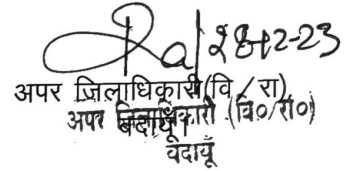 28-12-23
अपर जिलाधिकारी(वि/रा)
अपर जिलाधिकारी (वि०/रा०)
बदायूँ।
वदायूँ